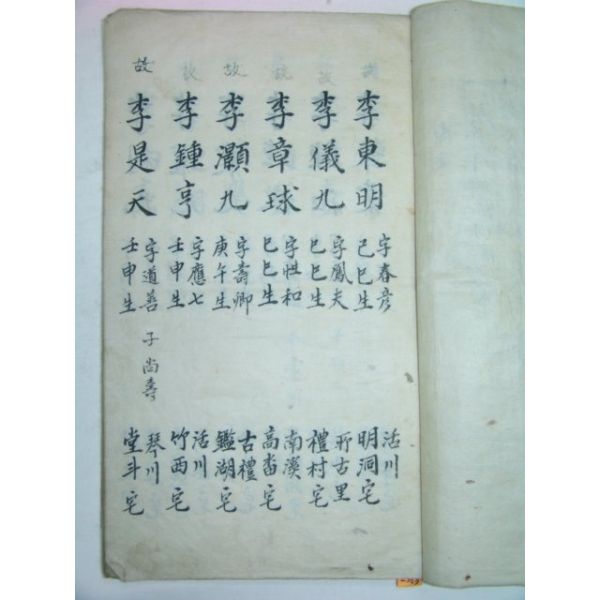 故
李東明
字春彦
己巳生
活川
明洞宅
故
李儀九
字鳳夫
己巳生
所古里
禮村宅
故
李章球
字性和
己巳生
南溪
高畓宅
故
李灝九
字壽卿
庚午生
古禮
鑑湖宅
故
李鍾亨
字應七
壬申生
活川
竹西宅
故
李是天
字道善
壬申生
子尚壽
琴川
堂斗宅